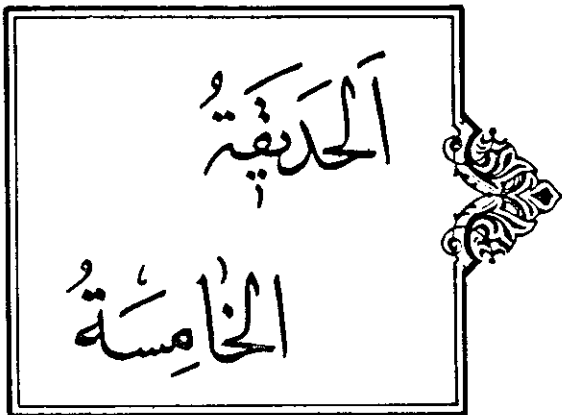 اَلحَدِيقَةُ
الخَامِسَةُ